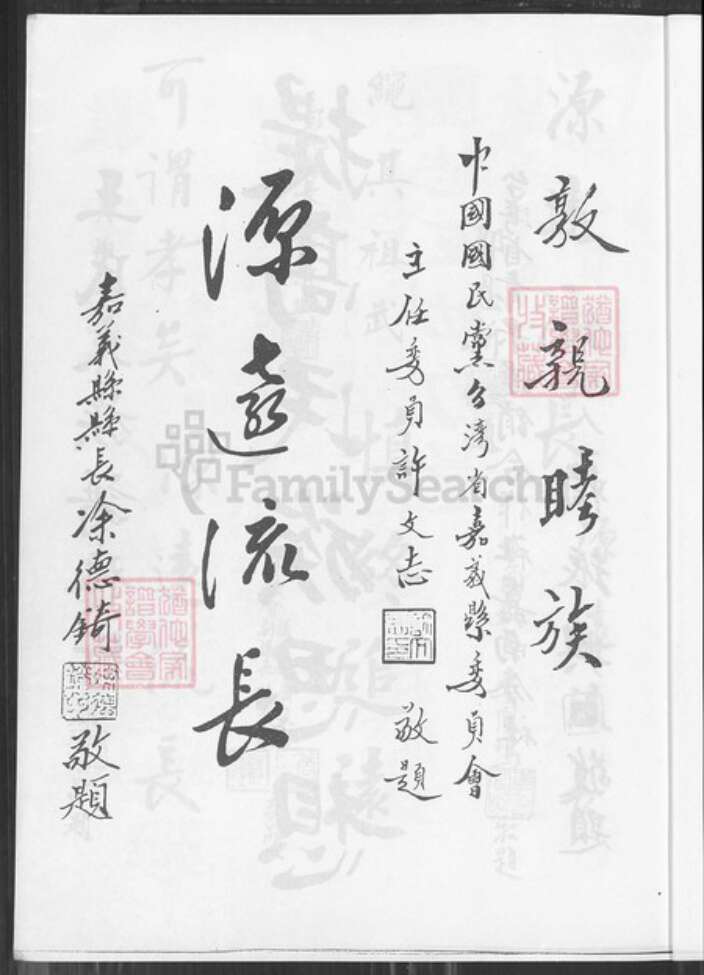 敦親睦族
中國國民黨台湾省嘉義縣委員會
主任委員許文志
敬題
源遠流長
嘉義縣縣長涂德錡
敬題
FamilySearch